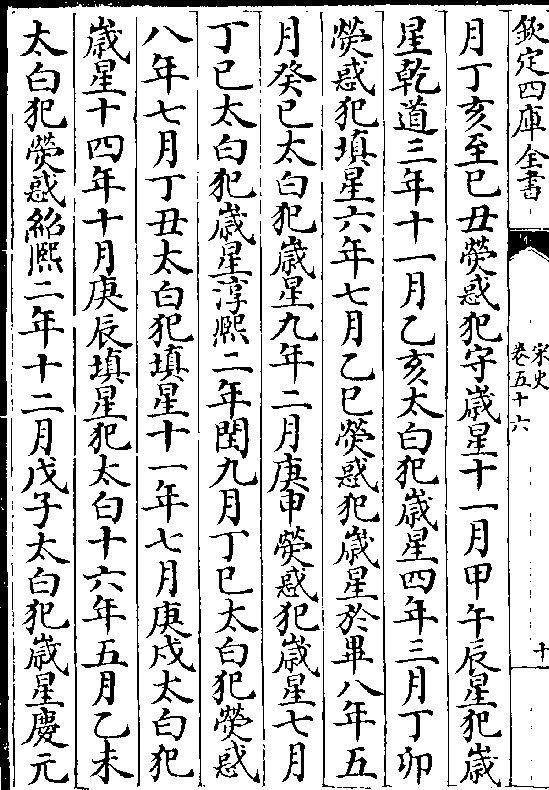 欽定四庫全書
宋史
卷五十六
十
月丁亥至巳丑熒惑犯守歲星十一月甲午辰星犯歲
星乾道三年十一月乙亥太白犯歲星四年三月丁卯
熒惑犯填星六年七月乙巳熒惑犯歲星於畢八年五
月癸巳太白犯歲星九年二月庚申熒惑犯歲星七月
丁巳太白犯歲星淳熙二年閏九月丁巳太白犯熒惑
八年七月丁丑太白犯填星十一年七月庚戌太白犯
歲星十四年十月庚辰填星犯太白十六年五月乙未
太白犯熒惑紹熙二年十二月戊子太白犯歲星慶元